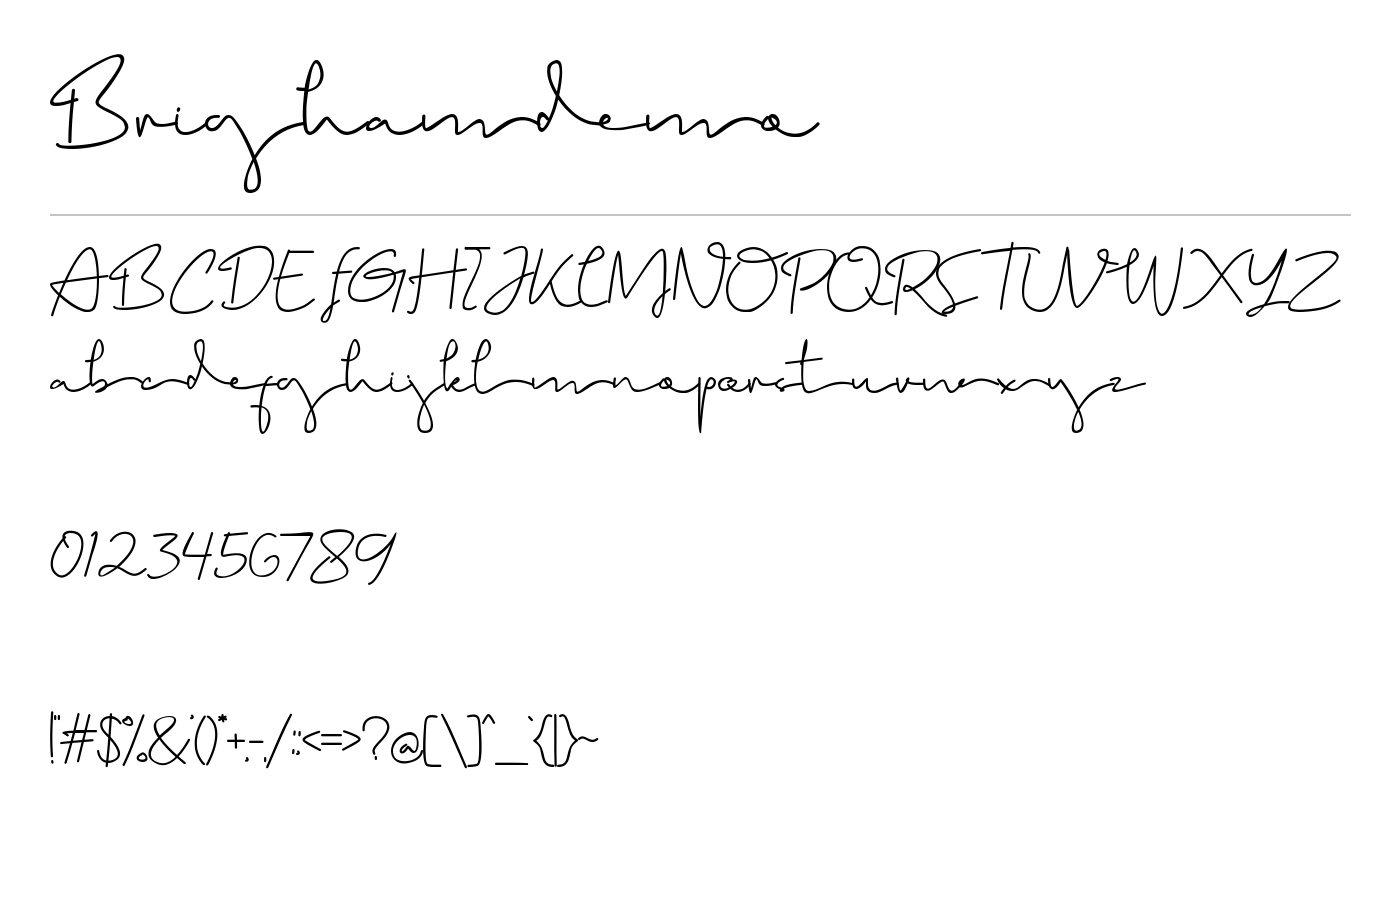 Brighamdemo
ABCDEFGHIJKLMNOPQRSTUVWXYZ
abcdefghijklmnopqrstuvwxyz
0123456789
!"#$%&'()*+,-./:;<=>?@[\]^_`{|}~